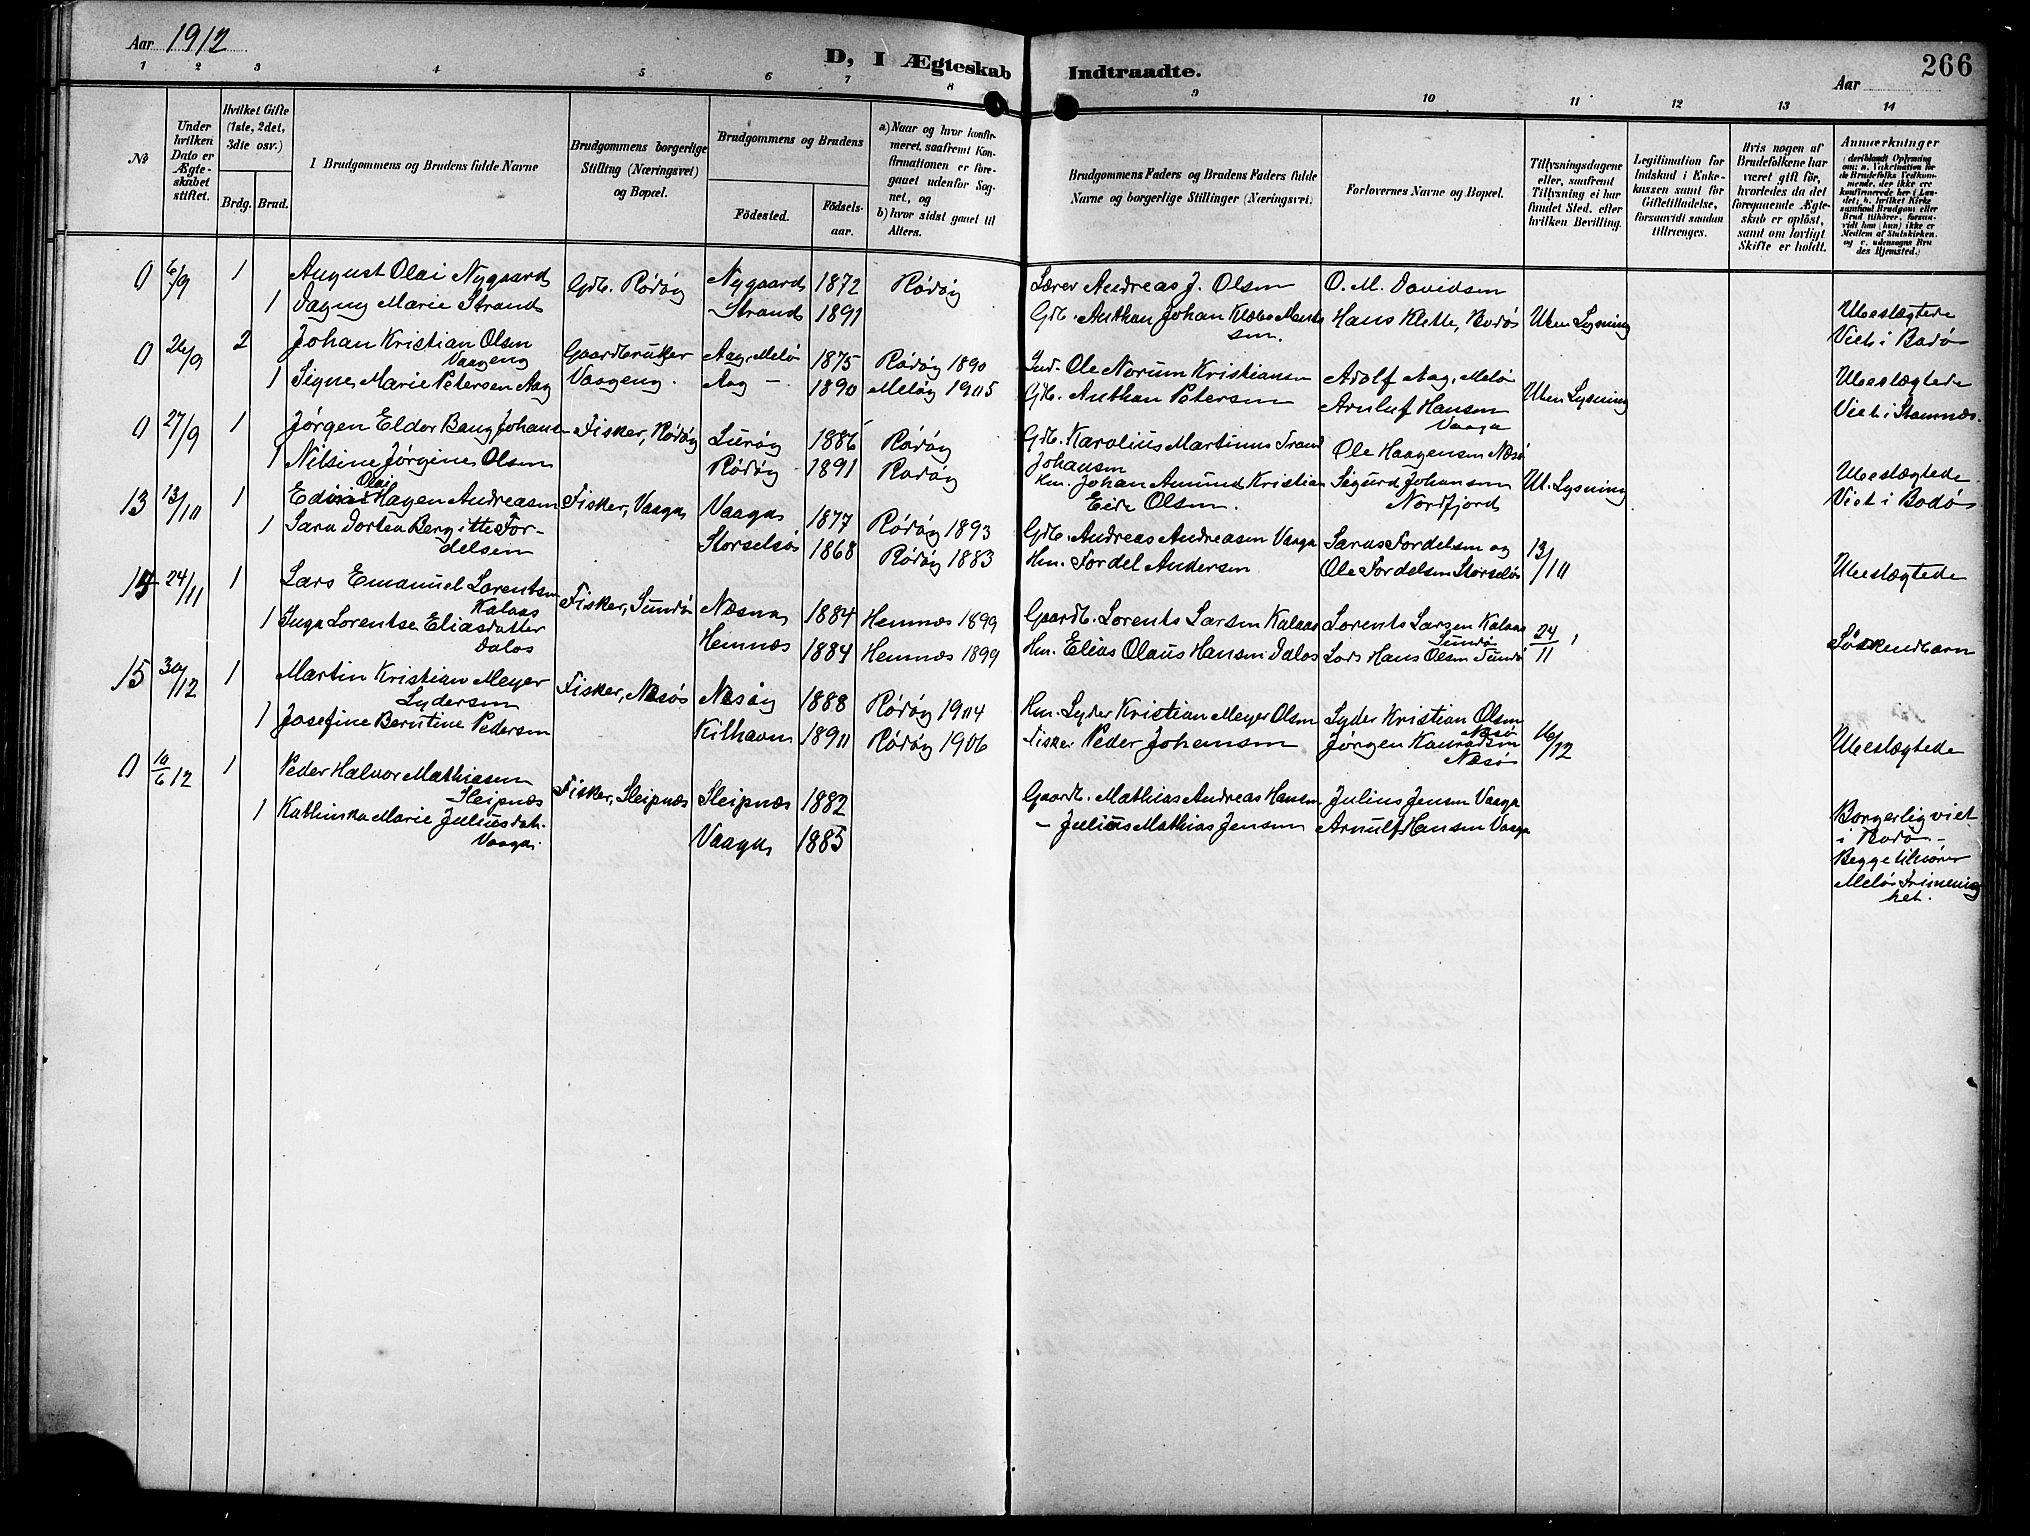 Aar 1912
D, I Ægteskab Indtraadte.
Aar
266
1 2 3 4 5 6 7 8 9 10 11 12 13 14
No
Under hvilken Dato er Ægteskabet stiftet.
Hvilket Gifte (1ste, 2det, 3die osv.)
Brdg. Brud.
I Brudgommens og Brudens fulde Navne
Brudgommens borgerlige Stilling (Næringsvei) og Bopæl.
Brudgommens og Brudens
Födested. Födsels-aar.
a) Naar og hvor konfirmeret, saafremt Konfirmationen er foregaaet udenfor Sognet, og
b) hvor sidst gaaet til Alters.
Brudgommens Faders og Brudens Faders fulde Navne og borgerlige Stillinger (Næringsvei.
Forlovernes Navne og Bopæl.
Tillysningsdagene eller, saafremt Tillysning ei har fundet Sted, efter hvilken Bevilling.
Legitimation for Indskud i Enkekassen samt for Giftetilladelse, forsaavidt saadan tiltrænges.
Hvis nogen af Brudefolkene har været gift för, hvorledes da det foregaaende Ægteskab er oplöst, samt om lovligt Skifte er holdt.
Anmærkninger
0 6/9 1 August Olai Nygaard Gdb. Rødøy Nygaard 1872 Rødøy Lærer Andreas J. Olsen O. M. Davidsen
1 Dagny Marie Strand Strand 1891 Gdb. Anthon Johan Klæbo Mentsen. Hans Klette, Bodø Uten Lysning Ubeslægtede
Viet i Bodø
0 26/9 2 Johan Kristian Olsen Vaageng Gaardbruker Vaageng. Aag, Melø 1875 Rødøy 1890 Ind. Ole Norum Kristiansen Adolf Aag, Melø
1 Signe Marie Petersen Aag Aag — 1890 Meløy 1905 Gdb. Anthon Petersen Arnluf Hansen Vaaga Uten Lysning Ubeslægtede
Viet i Stamnæs.
0 27/9 1 Jørgen Eldor Bang Johansen Fisker, Rødøy Lurøy 1886 Rødøy Gdb. Karolius Martinus Trand Johansen Ole Haagensen Næsø
1 Nilsine Jørgine Olsen Rødøy 1891 Rødøy Hm. Johan Amund Kristian Eide Olsen. Sigurd Johansen Nordfjord Ut. Lysning Ubeslægtede
Viet i Bodø
13 13/10 1 Olai Hagen Andreasen Fisker, Vaaga Vaaga 1877 Rødøy 1893 Gdb. Andreas Andreasen Vaaga Sarus Fordelsen og
1 Sara Dortea Bergitte Fordelsen Storselsø 1868 Rødøy 1883 Hm. Fordel Andersen Ole Fordelsen Storselsø 13/10 Ubeslægtede
14 24/11 1 Lars Emanuel Lorentsen Kalaas Fisker, Sundø Næsna 1884 Hemnæs 1899 Gaardb. Lorents Larsen Kalaas Lorents Larsen Kalaas Sundø
1 Inga Lorentse Eliasdatter Dalos Hemnæs 1884 Hemnæs 1899 Hm. Elias Olaus Hansen Dalos Lods Hans Olsen Sundø 24/11 Søskendbarn
15 30/12 1 Martin Kristian Meyer Lydersen Fisker, Næsø Næsøy 1888 Rødøy 1904 Hm. Lyder Kristian Meyer Olsen Lyder Kristian Olsen Næsø
1 Josefine Berntine Pedersen Kilhavn 1890 Rødøy 1906 Fisker Peder Johansen Jørgen Konradsen Næsø 16/12 Ubeslægtede
0 10/6 12 1 Peder Halvor Mathiasen Sleipnæs Fisker, Sleipnæs Sleipnæs 1882 Gaardb. Mathias Andreas Hansen Julius Jensen Vaaga
1 Kathinka Marie Juliusdat. Vaaga. Vaaga 1885 — Julius Mathias Jensen Arnulf Hansen Vaaga Borgerlig viet
i Bodø —
Begge tilhører
Melø Frimenig
het.